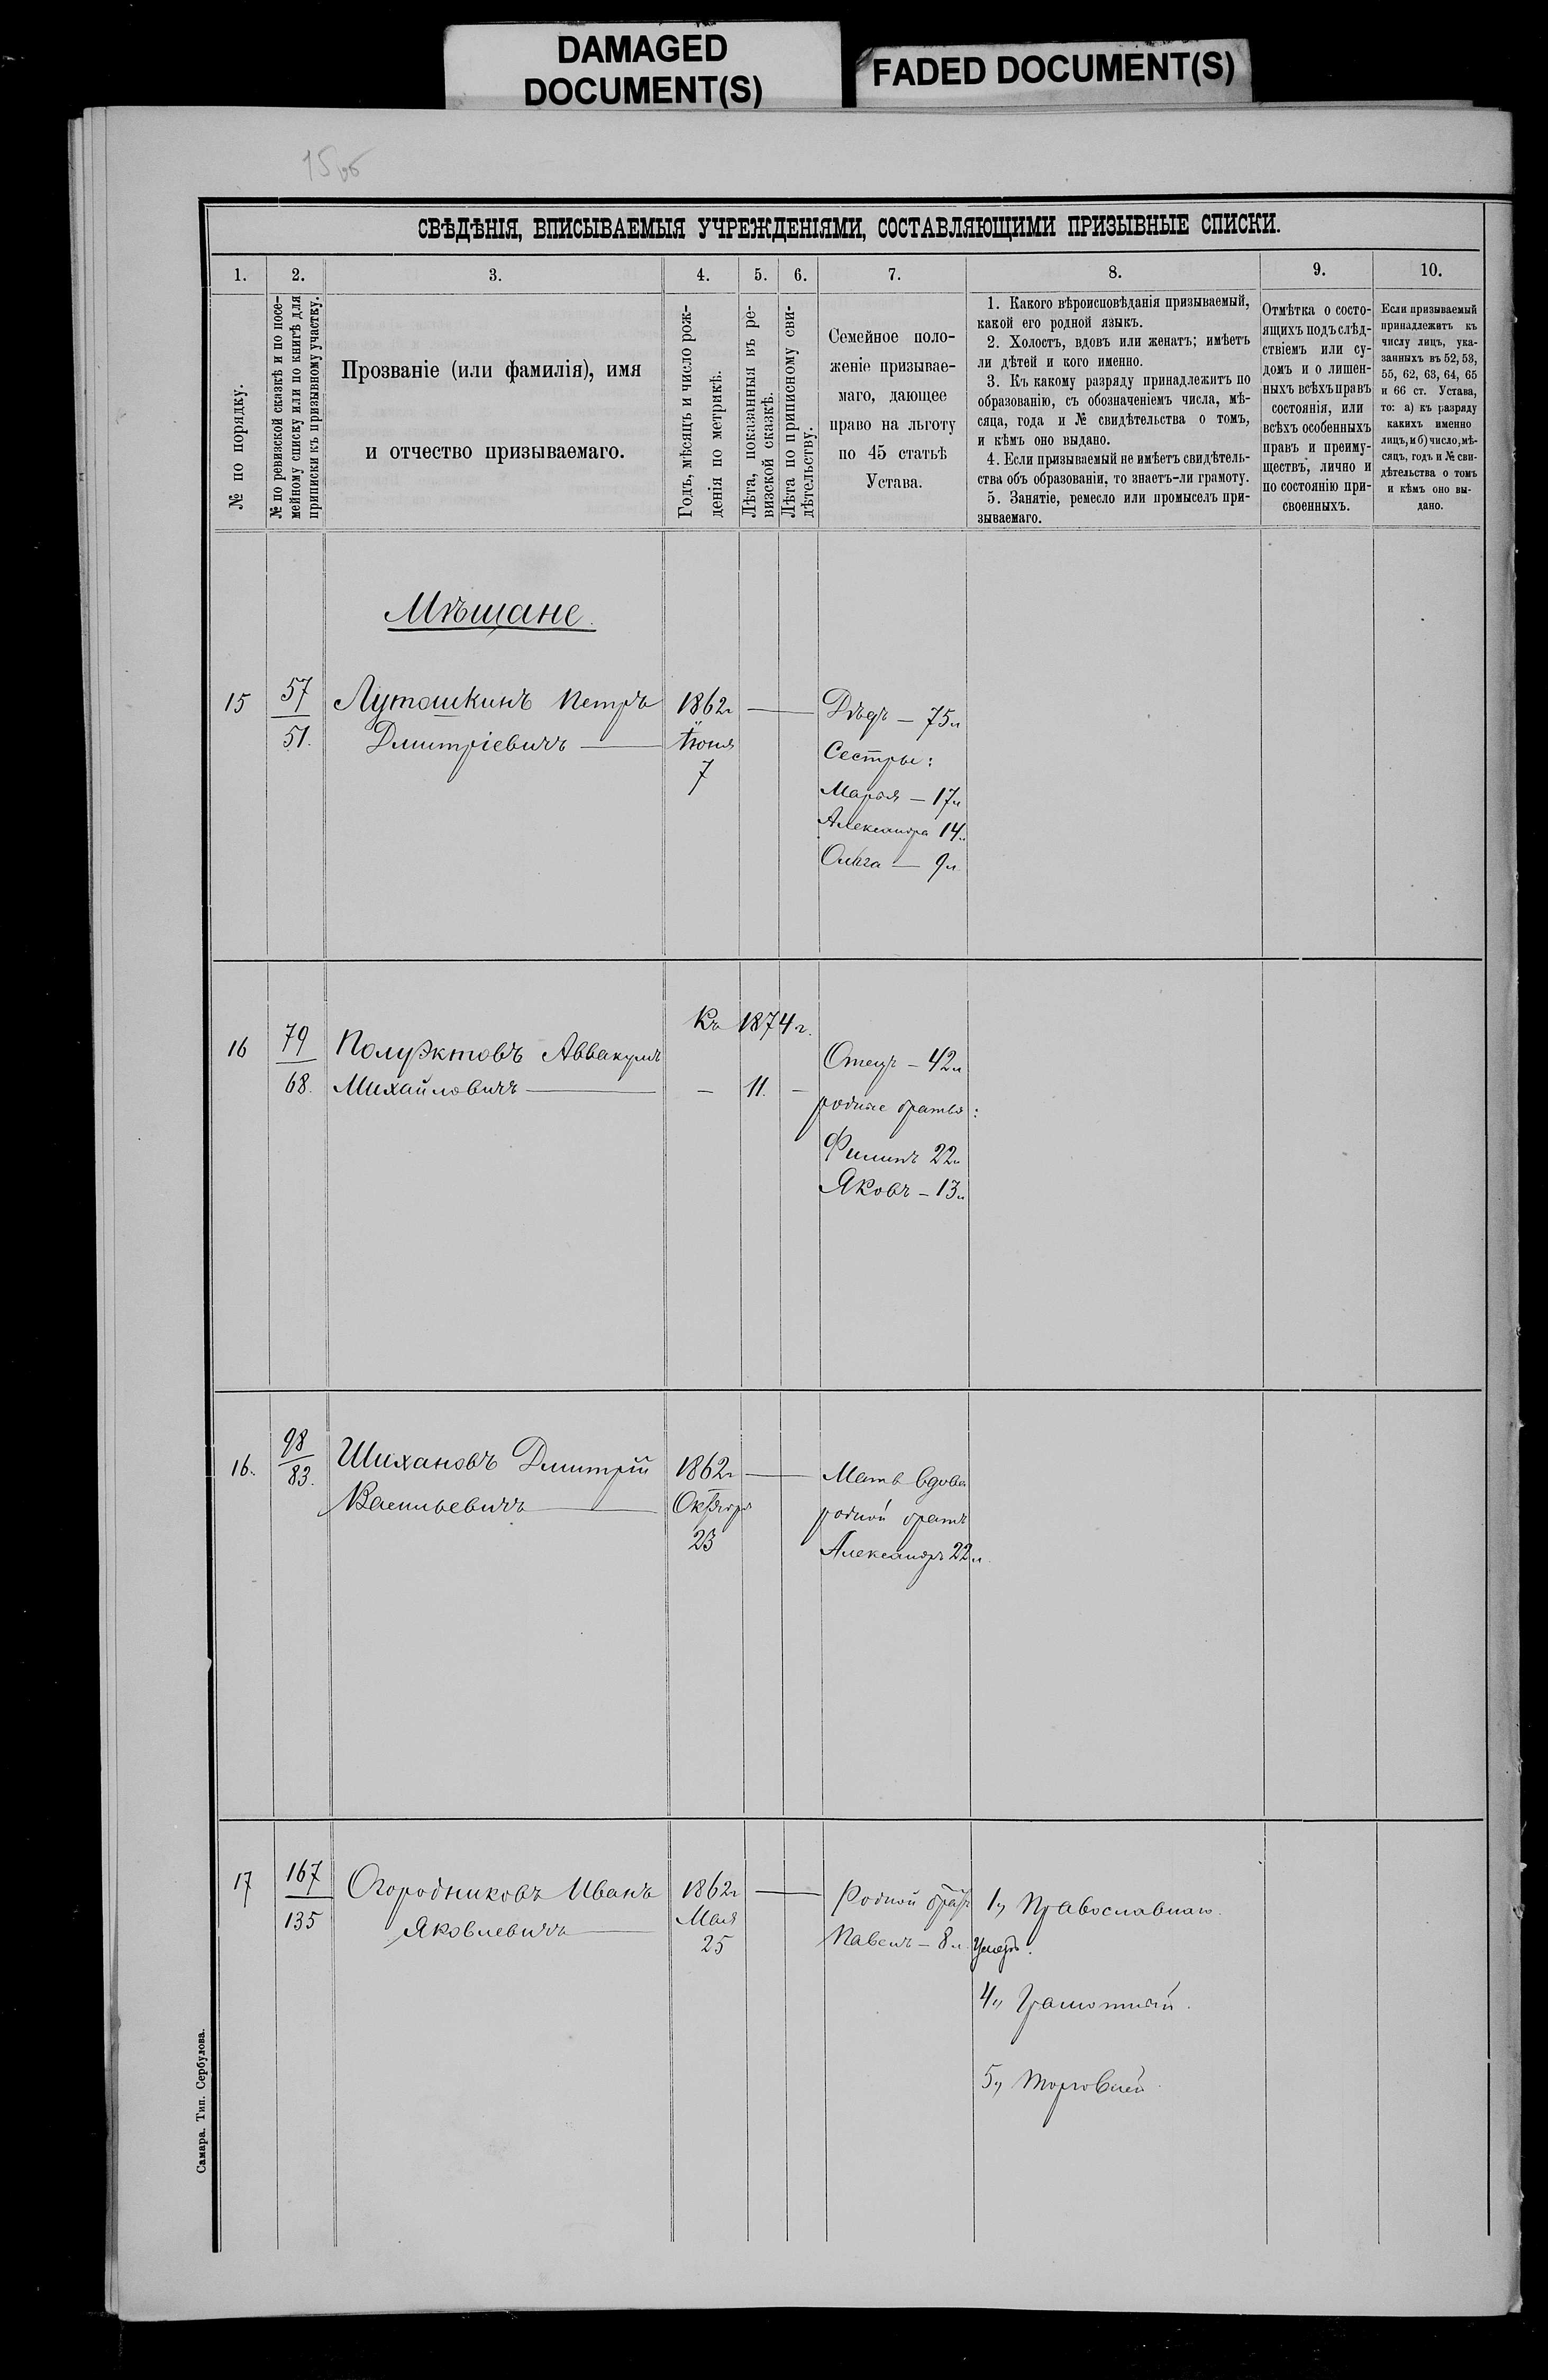 DAMAGED
DOCUMENT(S)
FADED DOCUMENT(S)
15об
СВѢДѢНІЯ, ВПИСЫВАЕМЫЯ УЧРЕЖДЕНІЯМИ, СОСТАВЛЯЮЩИМИ ПРИЗЫВНЫЕ СПИСКИ.
1. 2. 3. 4. 5. 6. 7. 8. 9. 10.
№ по порядку.
№ по ревизской сказкѣ и по посе-
мейному списку или по книгѣ для
приписки къ призывному участку.
Прозваніе (или фамилія), имя
и отчество призываемаго.
Годъ, мѣсяцъ и число рож-
денія по метрикѣ.
Лѣта, показанныя въ ре-
визской сказкѣ.
Лѣта по приписному сви-
дѣтельству.
Семейное поло-
женіе призывае-
маго, дающее
право на льготу
по 45 статьѣ
Устава.
1. Какого вѣроисповѣданія призываемый,
какой его родной языкъ.
2. Холостъ, вдовъ или женатъ; имѣетъ
ли дѣтей и кого именно.
3. Къ какому разряду принадлежитъ по
образованію, съ обозначеніемъ числа, мѣ-
сяца, года и № свидѣтельства о томъ,
и кѣмъ оно выдано.
4. Если призываемый не имѣетъ свидѣтель-
ства объ образованіи, то знаетъ-ли грамоту.
5. Занятіе, ремесло или промыселъ при-
зываемаго.
Отмѣтка о состо-
ящихъ подъ слѣд-
ствіемъ или су-
домъ и о лишен-
ныхъ всѣхъ правъ
состоянія, или
всѣхъ особенныхъ
правъ и преиму-
ществъ, лично и
по состоянію при-
своенныхъ.
Если призываемый
принадлежитъ къ
числу лицъ, ука-
занныхъ въ 52, 53,
55, 62, 63, 64, 65
и 66 ст. Устава,
то: а) къ разряду
какихъ именно
лицъ, и б) число, мѣ-
сяцъ, годъ и № сви-
дѣтельства о томъ
и кѣмъ оно вы-
дано.
Мѣщане.
15 57 Лутошкинъ Петръ 1862г — Дѣдъ — 75л
51. Дмитріевичъ — Іюня
7
Сестры:
Марья — 17л
Александра 14л
Ольга — 9л
Къ 1874г.
16 79 Полуэктовъ Аввакумъ Отецъ — 42л
68. Михайловичъ — — 11. —
родные братья:
Филипъ 22л
Яковъ — 13л
16. 98 Шихановъ Дмитрій 1862г — Мать вдова
83. Васильевичъ — Октября
23
родной братъ
Александръ 22л
17 167 Огородниковъ Иванъ 1862г — Родной братъ 1, Православнаго.
135 Яковлевичъ — Мая
25
Павелъ — 8л. Умеръ.
4, Грамотный.
5, Торговлей.
Самара. Тип. Сербулова.